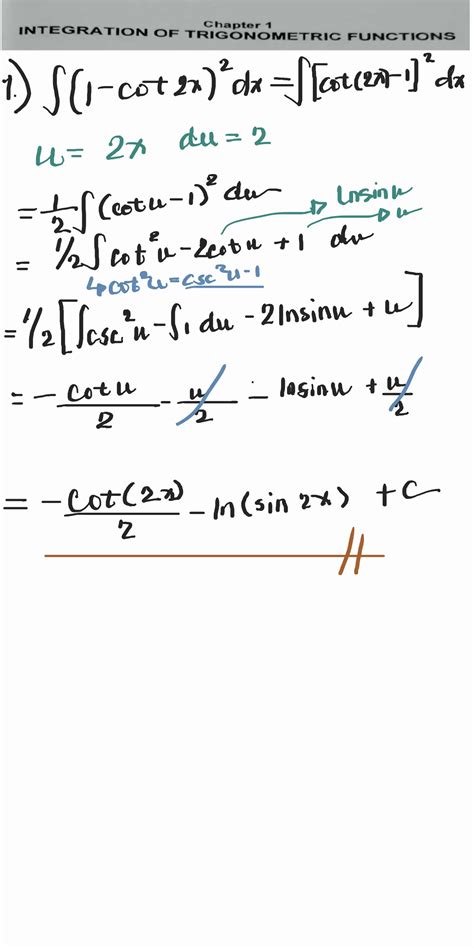 Chapter 1
INTEGRATION OF TRIGONOMETRIC FUNCTIONS
1.) ∫(1-cot2x)²dx=∫[cot(2x)-1]²dx
u= 2x du=2
=1/2∫(cotu-1)²du lnsinu
= 1/2∫cot²u-2cotu+1 du u
↳cot²u=csc²u-1
=1/2[∫csc²u-∫1 du-2lnsinu+u]
= -cotu/2 - u/2 - lnsinu + u/2
= -cot(2x)/2 - ln(sin 2x) +C